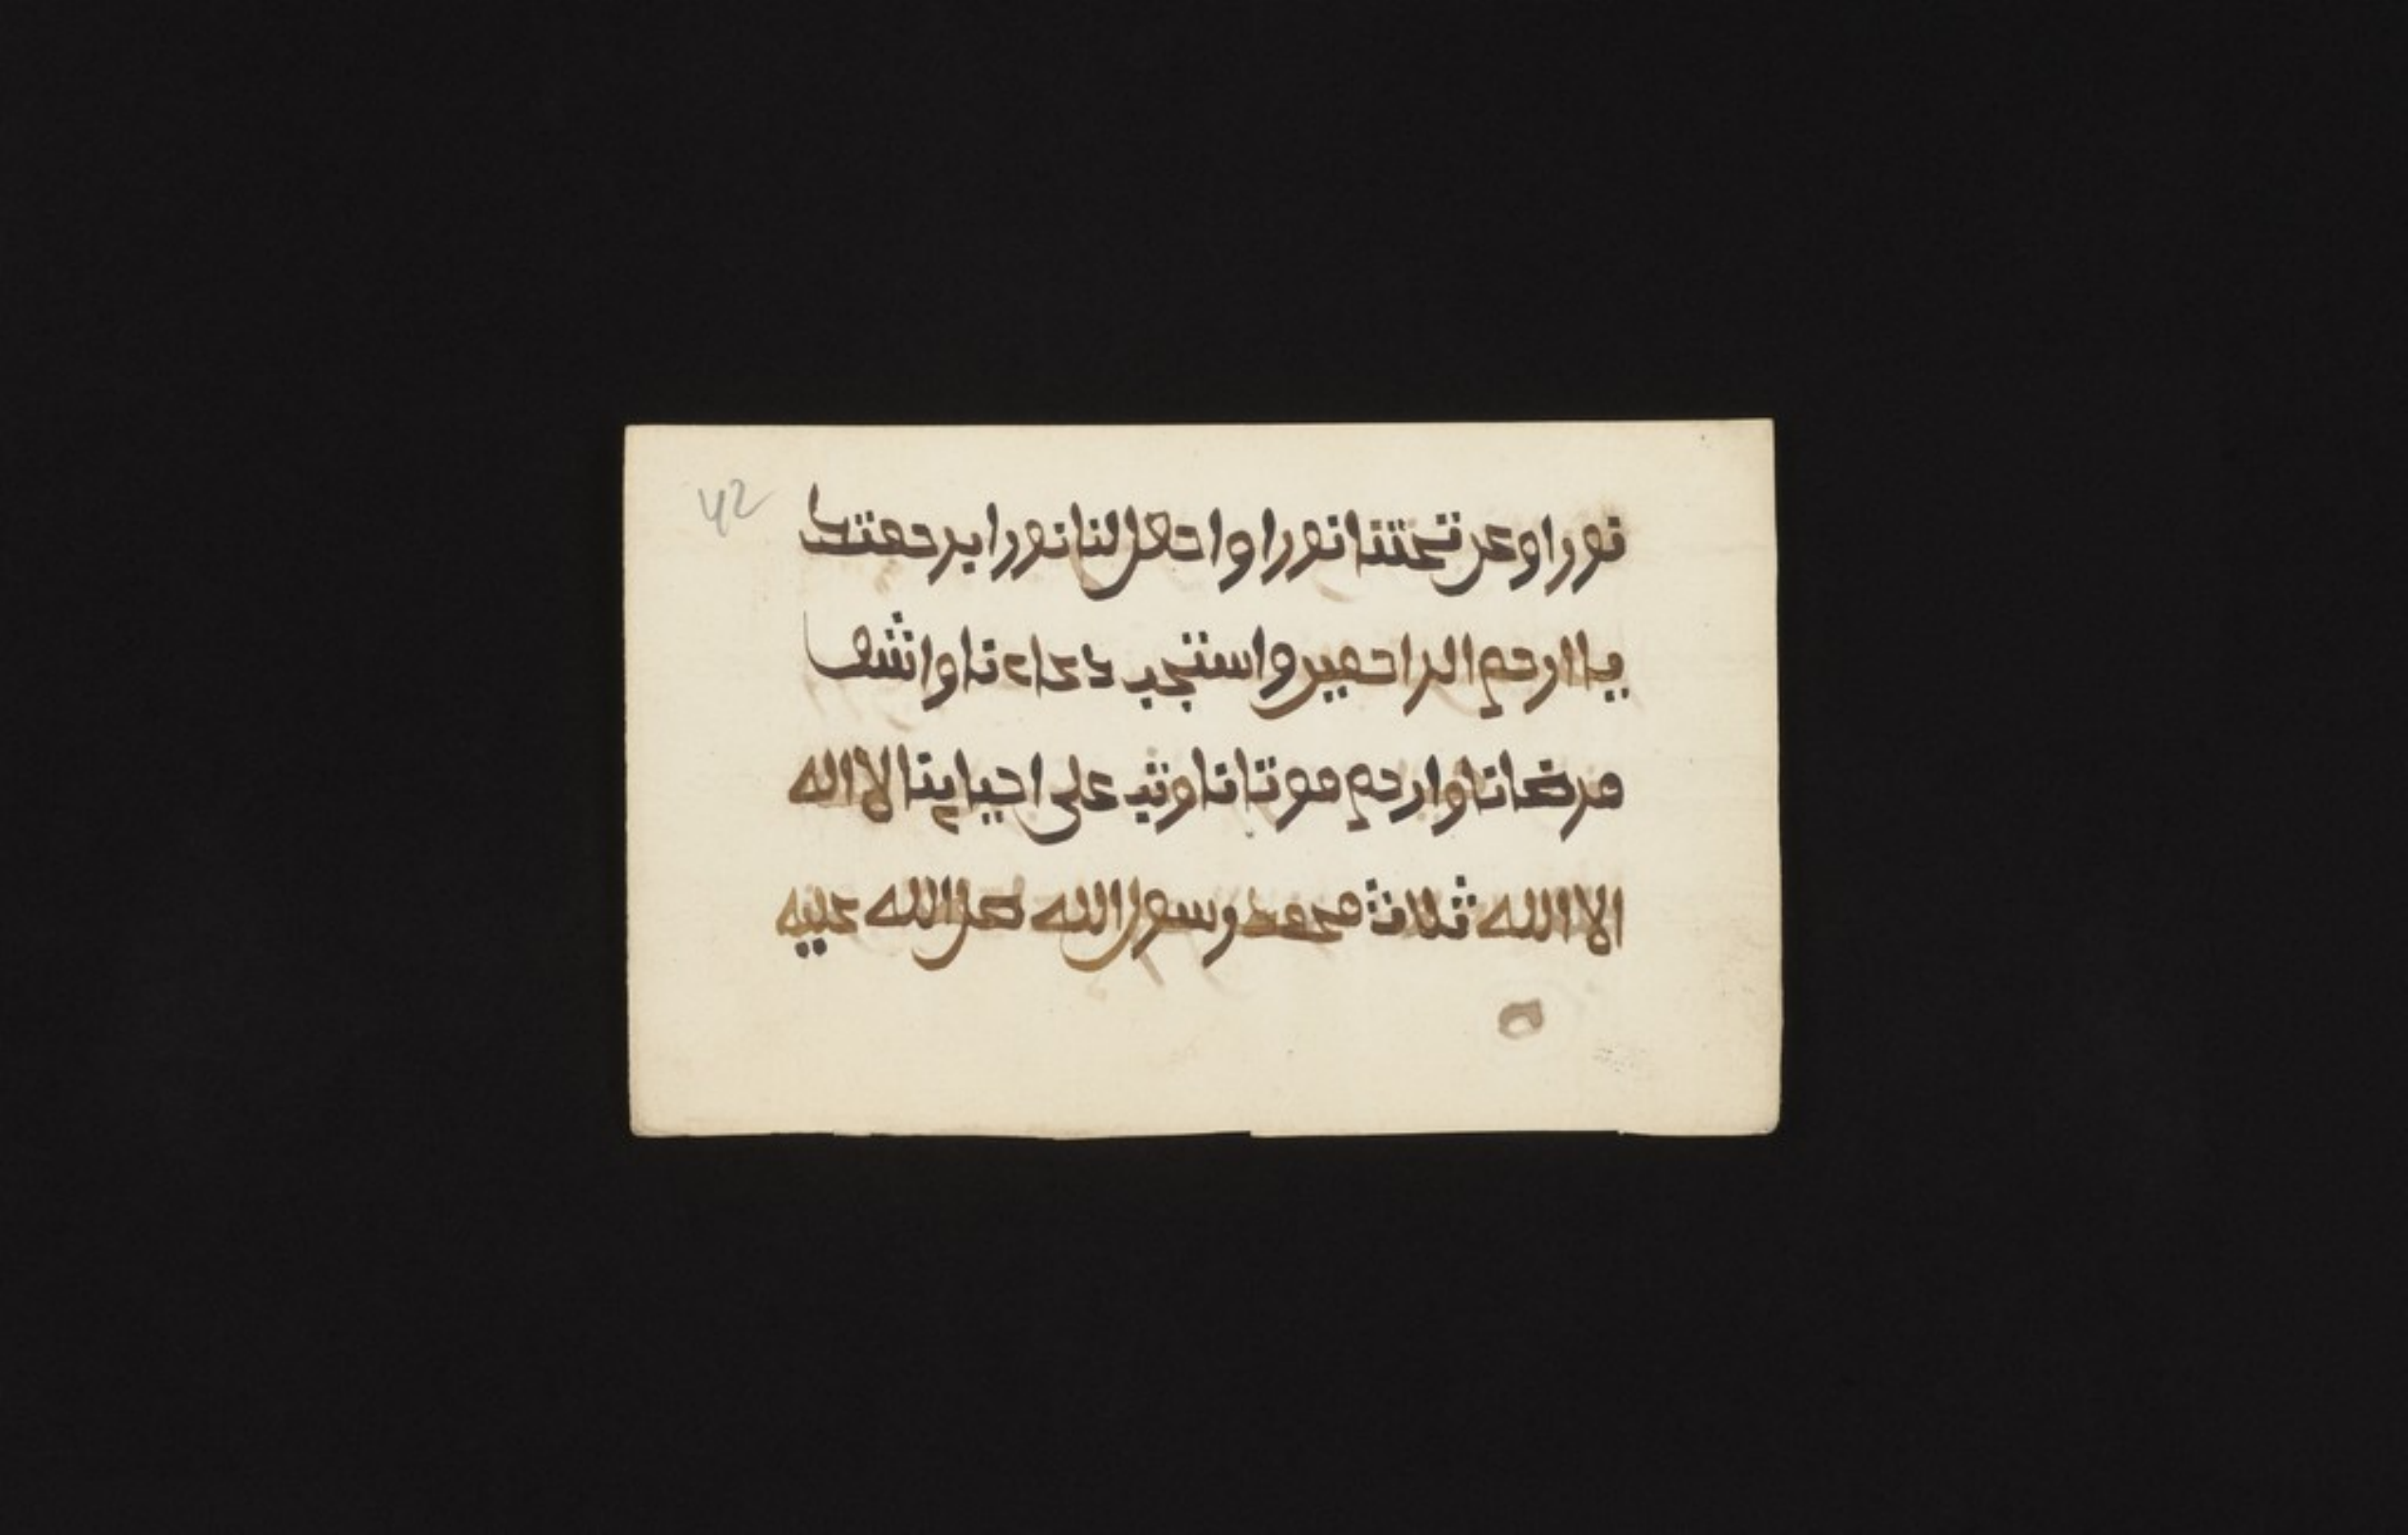 42
نورا وعن تحتنا نورا واجعل لنا نورا برحمتك
يا ارحم الراحمين واستجب دعاءنا واشف
مرضانا وارحم موتانا وتب على احيائنا لا اله
الا الله ثلاث محمد رسول الله صل الله عليه